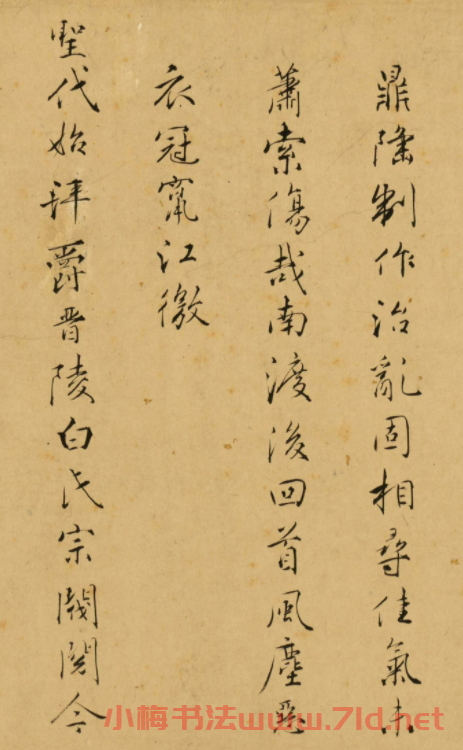 鼎隆制作治亂固相尋佳氣未
蕭索傷哉南渡後回首風塵惡
衣冠竄江徼
聖代始拜爵晋陵白氏宗閥閱今
小梅书法www.7ld.net